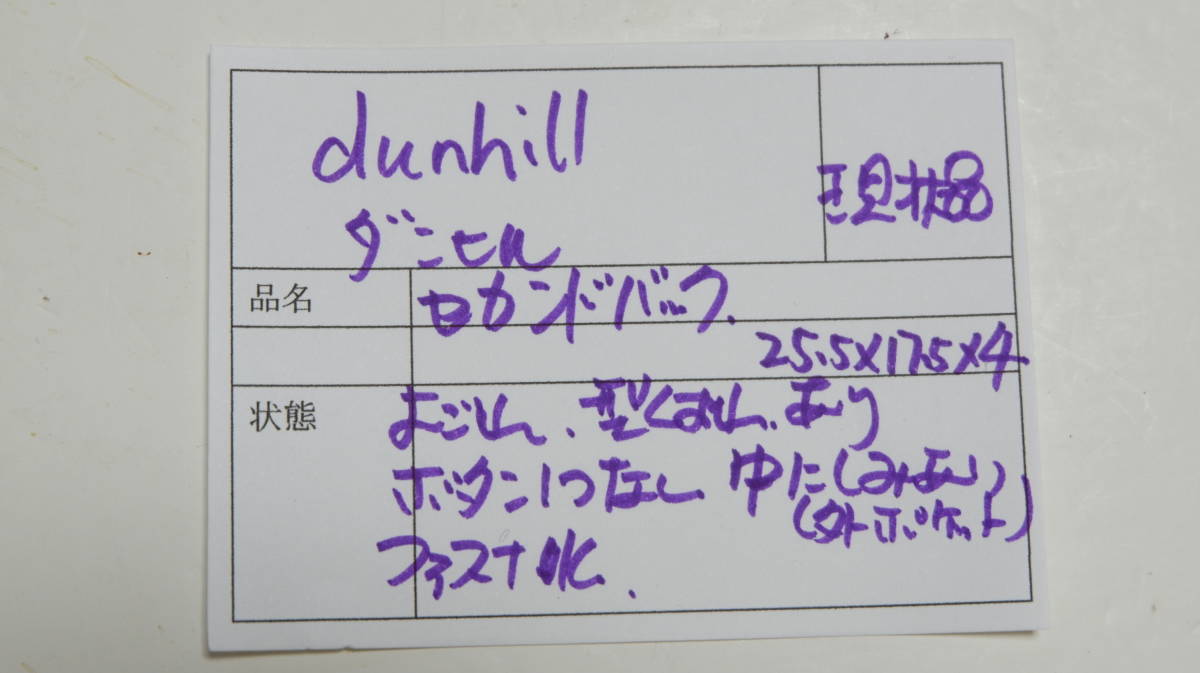 dunhill
現状品
ダンヒル
品名 セカンドバック.
25.5×17.5×4
状態 よごれ、型くずれ、あり
ボタン1つなし 中にしみあり
(外ポケット)
ファスナOK.